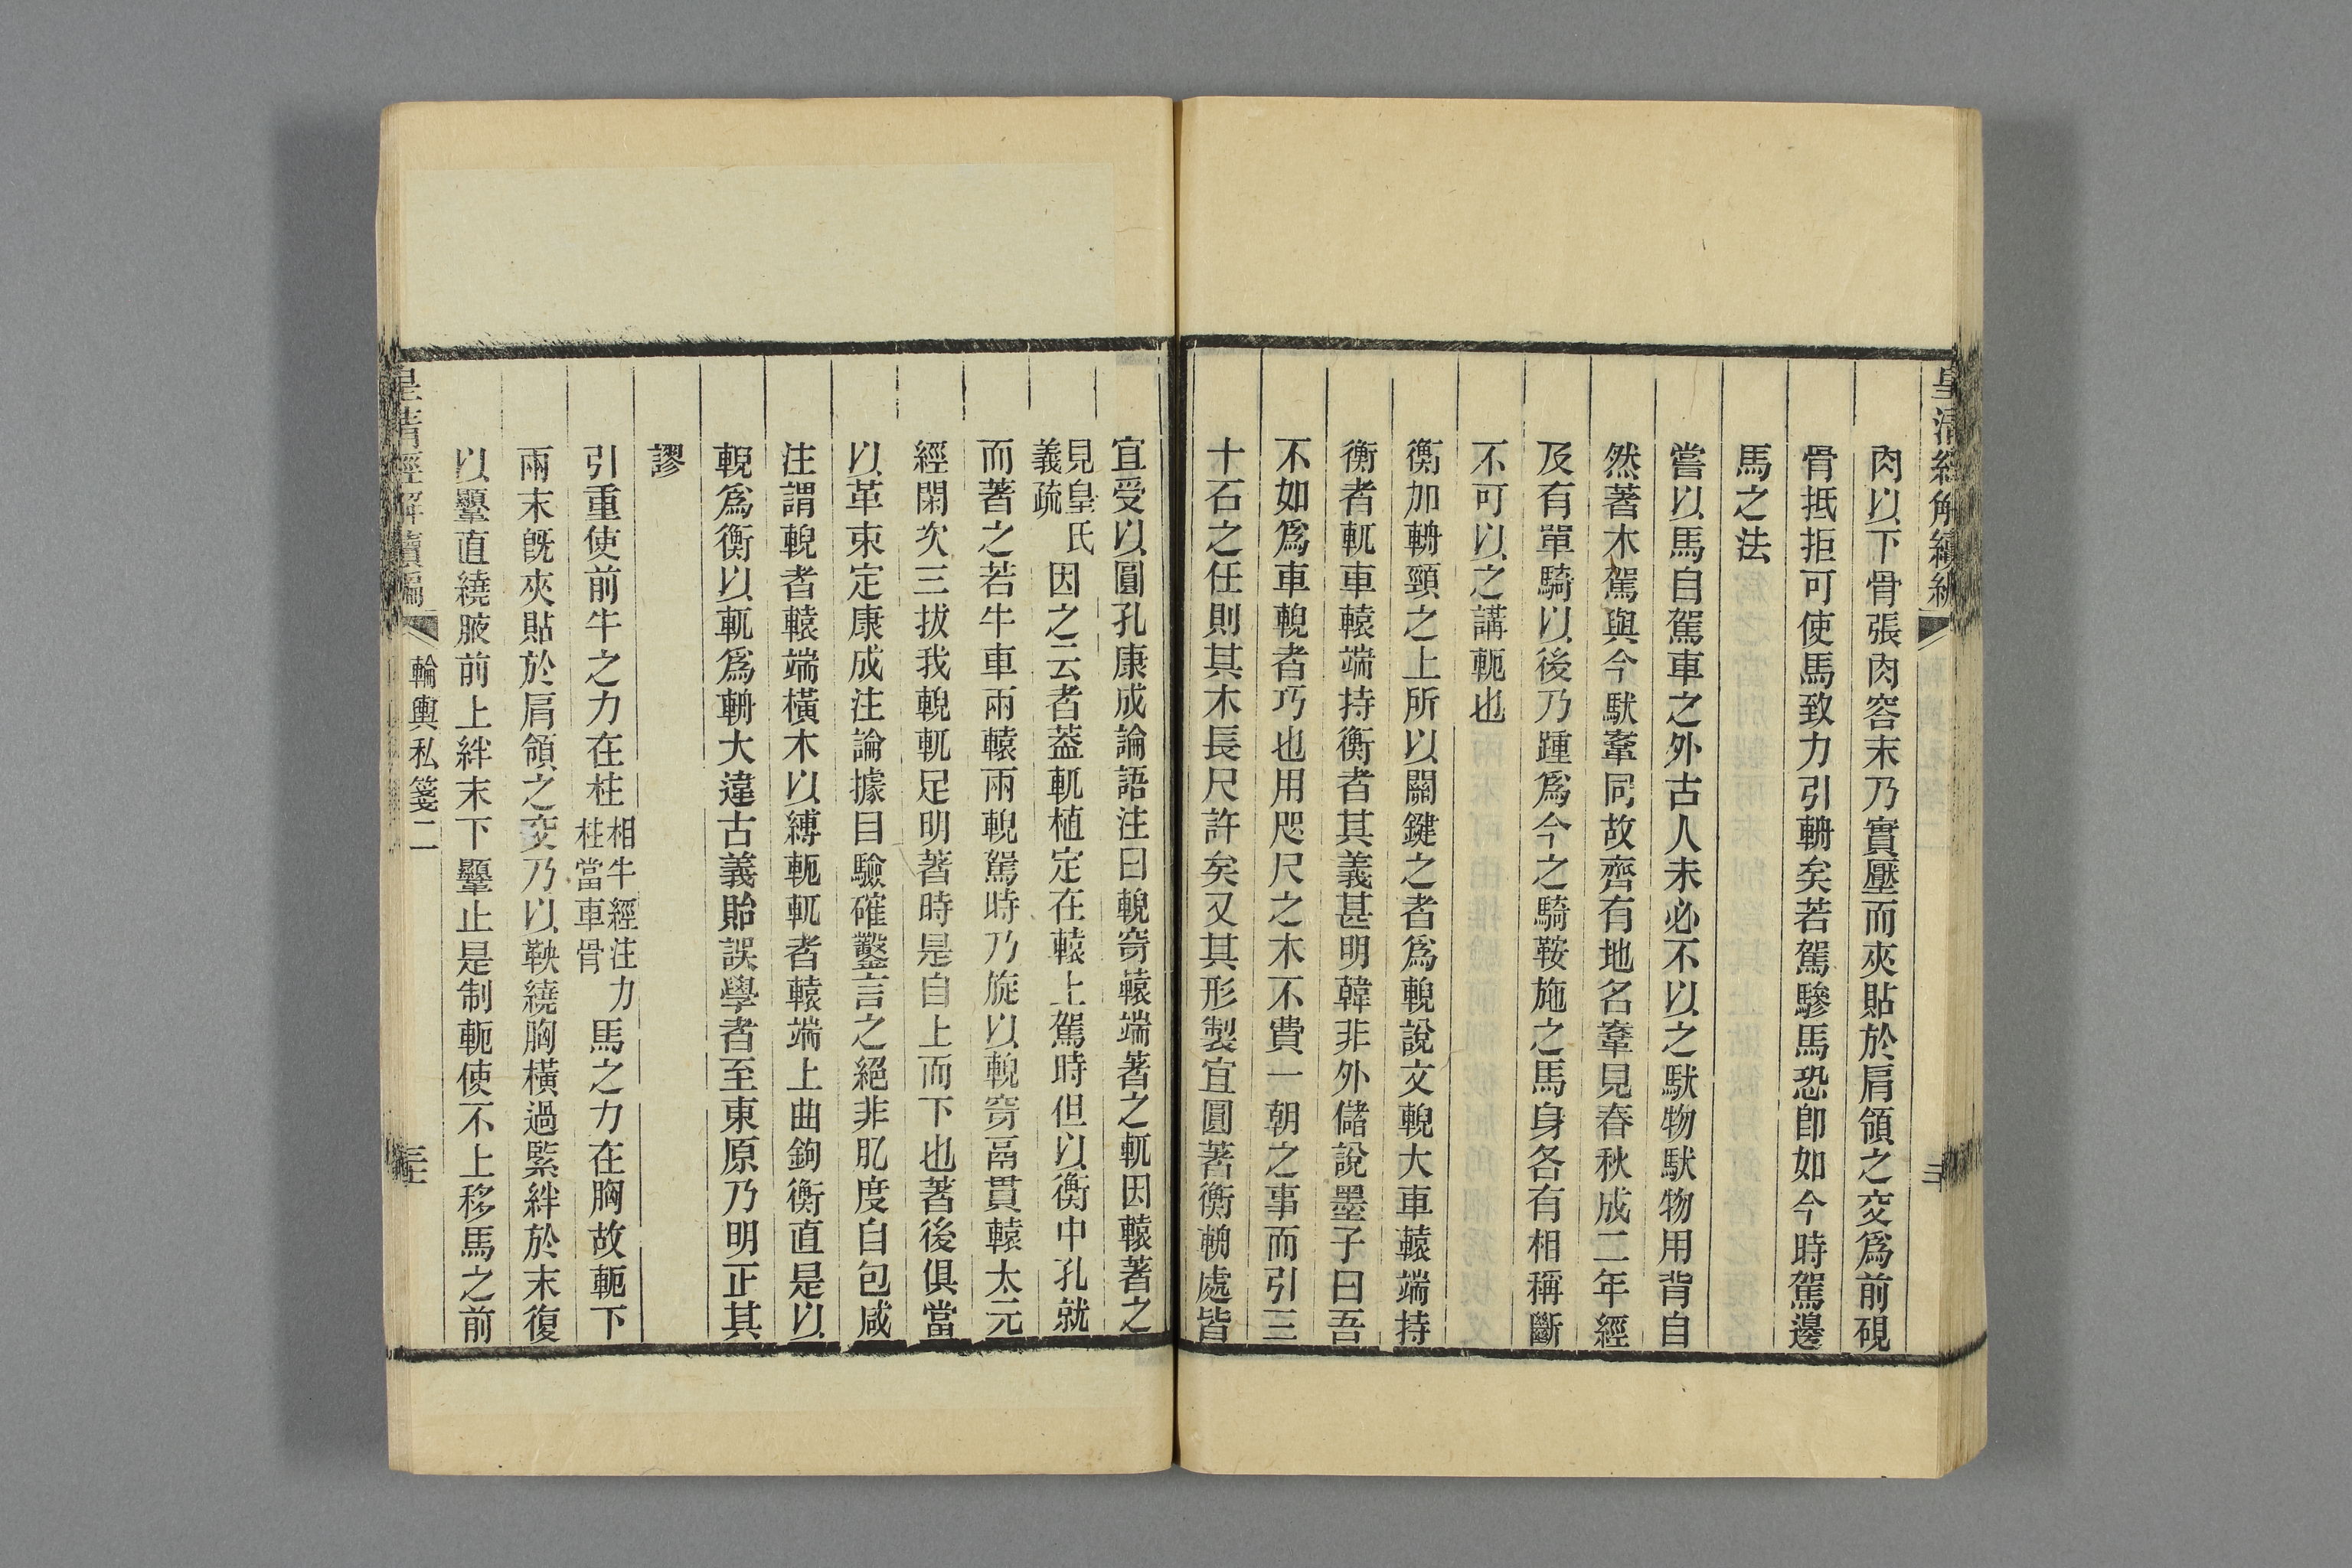 皇清經解續編
肉以下骨張肉容末乃實壓而夾貼於肩領之交爲前硯
骨抵拒可使馬致力引軵矣若駕驂馬恐卽如今時駕邊
馬之法
嘗以馬自駕車之外古人未必不以之馱物馱物用背自
然著木駕與今馱鞌同故齊有地名鞌見春秋成二年經
及有單騎以後乃踵爲今之騎鞍施之馬身各有相稱斷
不可以之講軛也
衡加軵頸之上所以關鍵之者爲輗說文輗大車轅端持
衡者軏車轅端持衡者其義甚明韓非外儲說墨子曰吾
不如爲車輗者巧也用咫尺之木不費一朝之事而引三
十石之任則其木長尺許矣又其形製宜圓著衡軵處皆
宜受以圓孔康成論語注曰輗穿轅端著之軏因轅著之
見皇氏義疏因之云者葢軏植定在轅上駕時但以衡中孔就
而著之若牛車兩轅兩輗駕時乃旋以輗穿鬲貫轅太元
經閑次三拔我輗軏足明著時是自上而下也著後俱當
以革束定康成注論據目驗確鑿言之絕非肊度自包咸
注謂輗者轅端橫木以縛軛軏者轅端上曲鉤衡直是以
輗爲衡以軏爲軵大違古義貽誤學者至東原乃明正其
謬
引重使前牛之力在柱相牛經注力柱當車骨馬之力在胸故軛下
兩末旣夾貼於肩領之交乃以鞅繞胸橫過緊絆於末復
以䡅直繞腋前上絆末下䡅止是制軛使不上移馬之前
皇清經解續編
輪輿私箋二